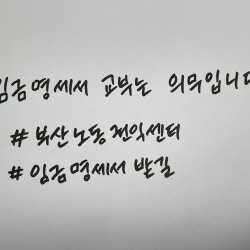 임금명세서 교부는 의무입니다
# 부산노동권익센터
# 임금명세서 받길